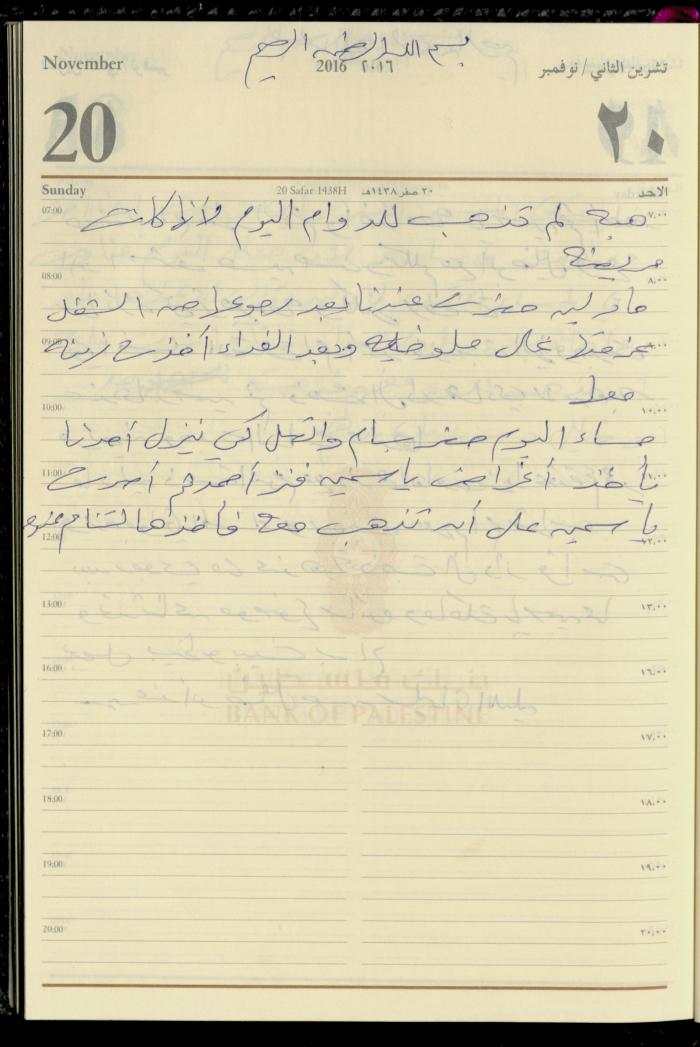 بسم الله الرحمن الرحيم
November 2016 ٢٠١٦ تشرين الثاني / نوفمبر
20 ٢٠
Sunday 20 Safar 1438H ٢٠ صفر ١٤٣٨هـ الاحد
07:00 هبة لم تذهب للدوام اليوم لأنها كانت ٧,٠٠
مريضة
08:00 ٨,٠٠
مادلين حضرت عندنا بعد رجوعها من الشغل
09:00 ملوخية وبعد الغداء أخذت زينة ٩,٠٠
معها
10:00 ١٠,٠٠
مساء اليوم حضر بسام واتصل كي نيزل أحدنا
11:00 يأخذ أغراض ياسمين فنزل أحمد ثم أصرت ١١,٠٠
ياسمين على أن تذهب معه فأخذها لتنام عنده
12:00 ١٢,٠٠
13:00 ١٣,٠٠
16:00 ١٦,٠٠
بنك فلسطين
BANK OF PALESTINE
17:00 ١٧,٠٠
18:00 ١٨,٠٠
19:00 ١٩,٠٠
20:00 ٢٠,٠٠